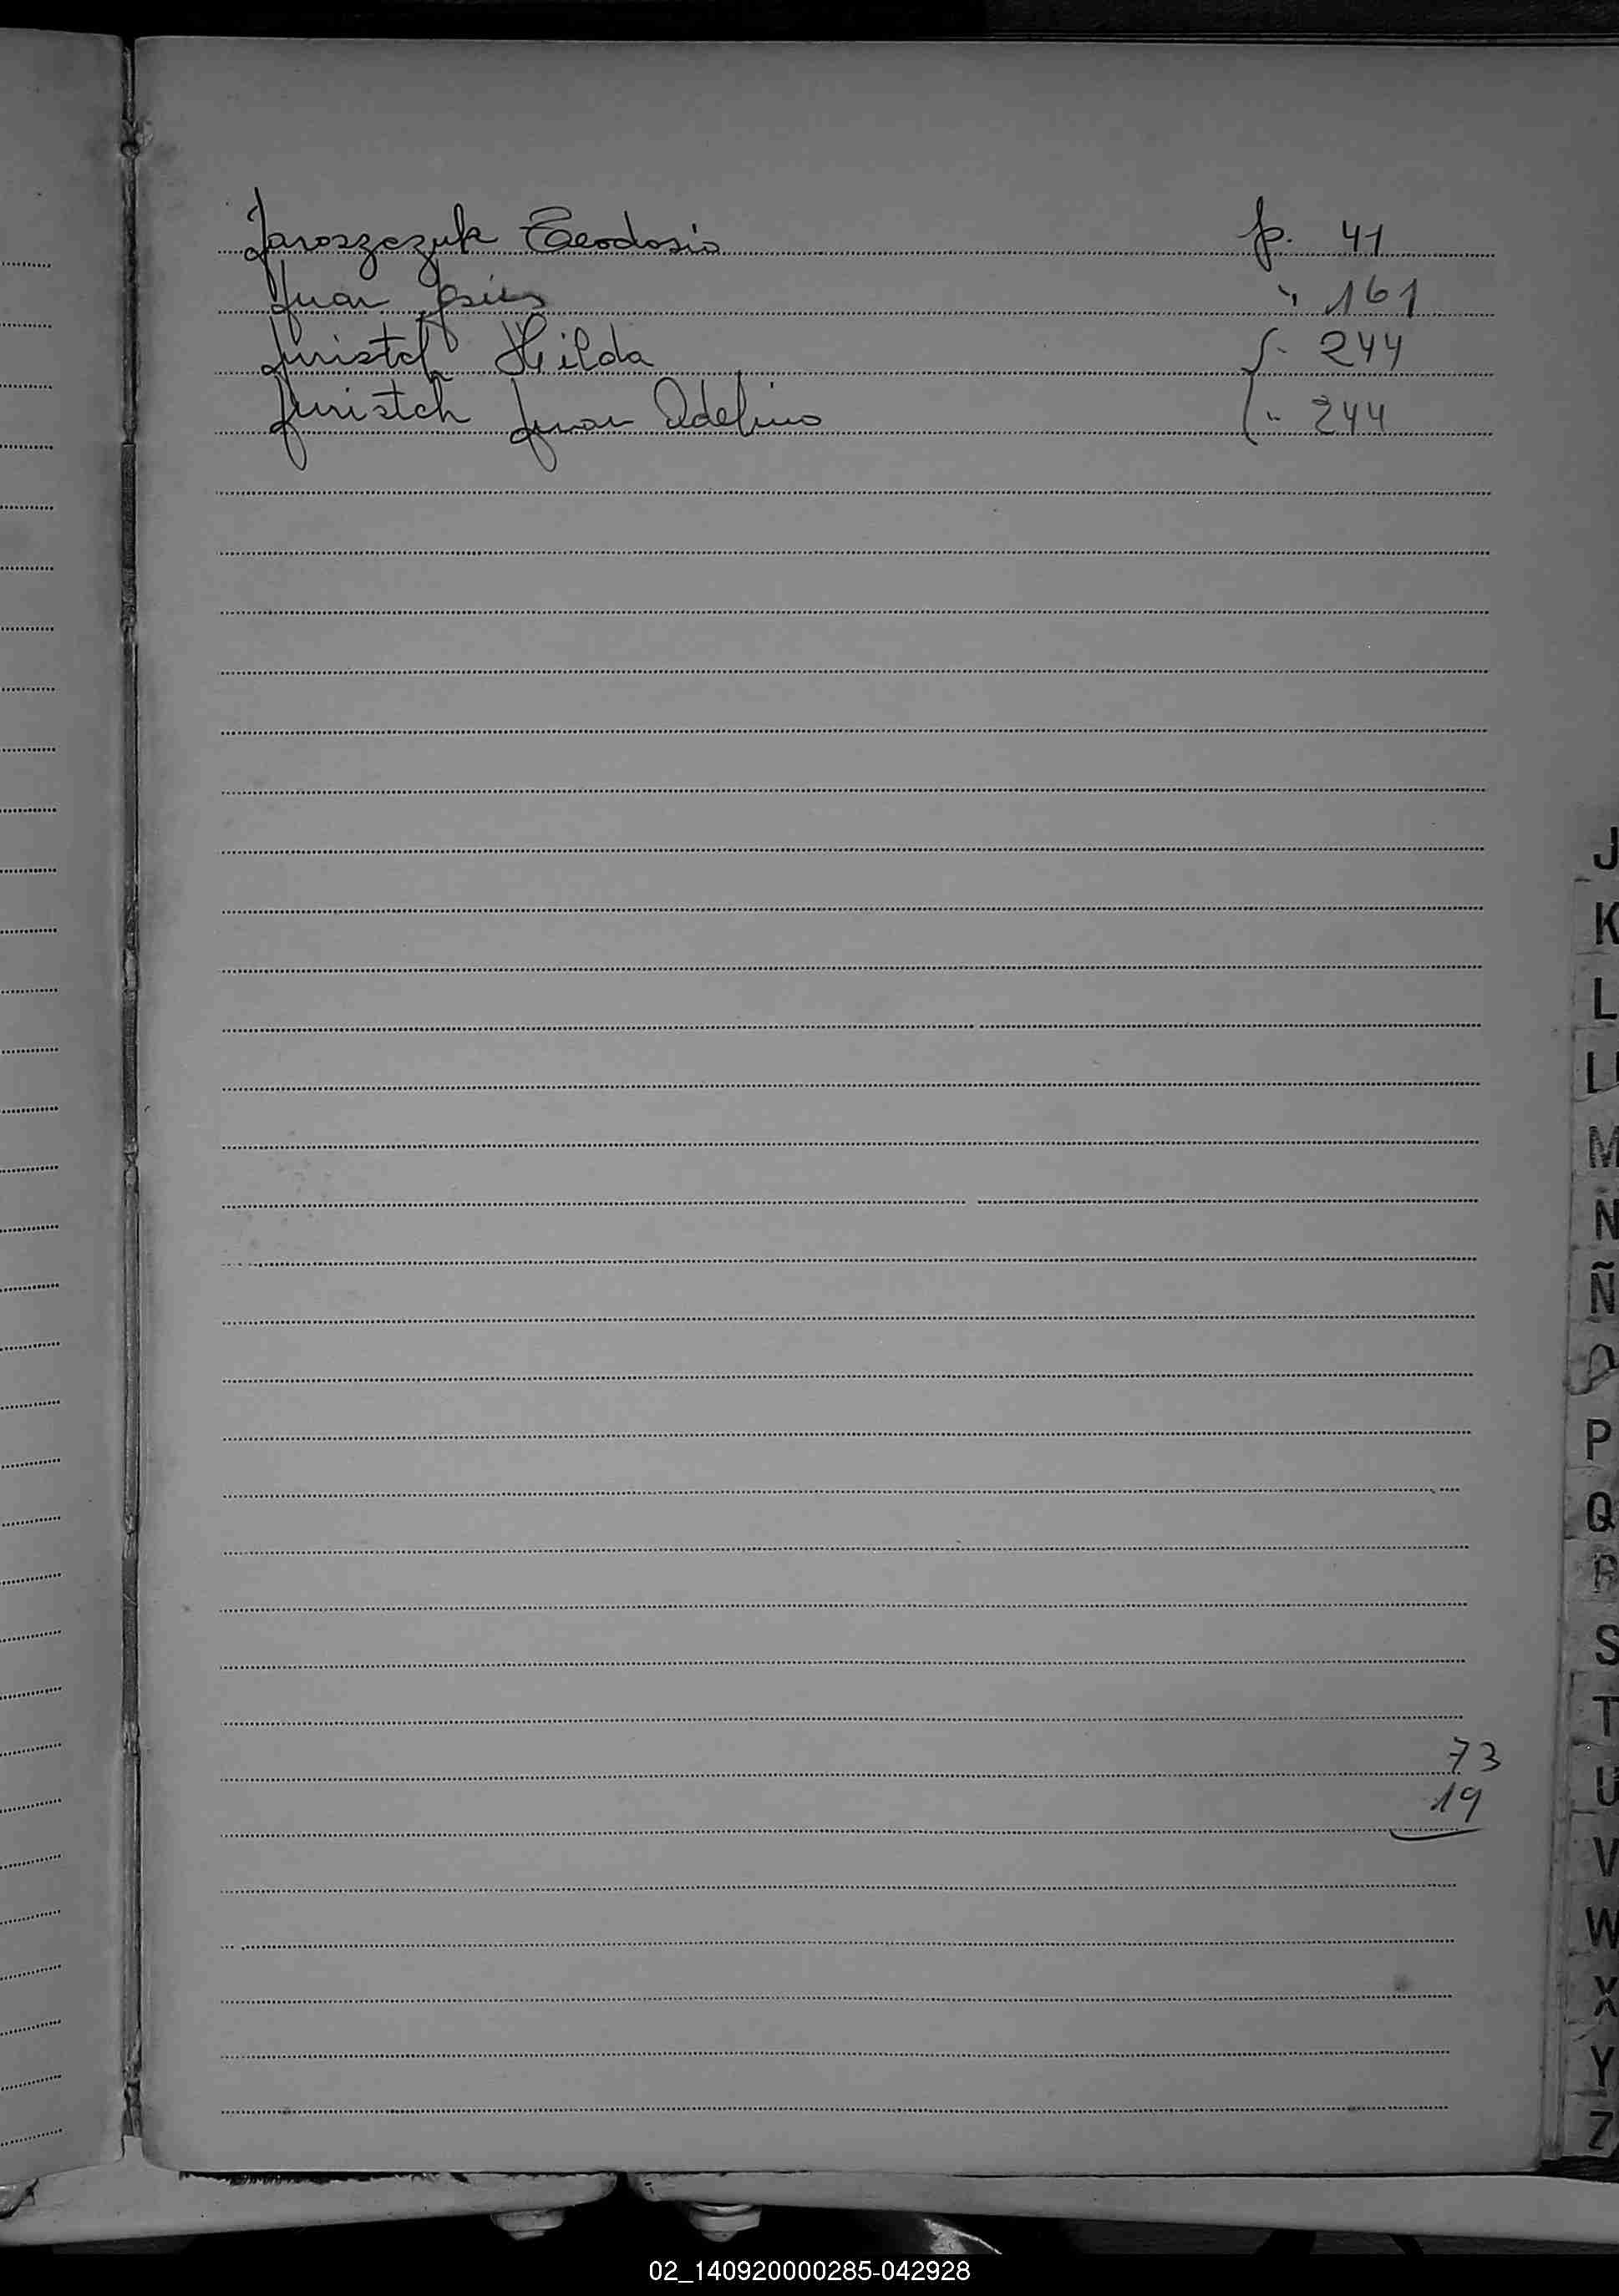 Jaroszczuk Teodosio p. 41
Juan Jesús " 161
Juristch Hilda " 244
Juristch Juan Adelino " 244
73
19
J
K
L
Ll
M
N
Ñ
O
P
Q
R
S
T
U
V
W
X
Y
Z
02_140920000285-042928